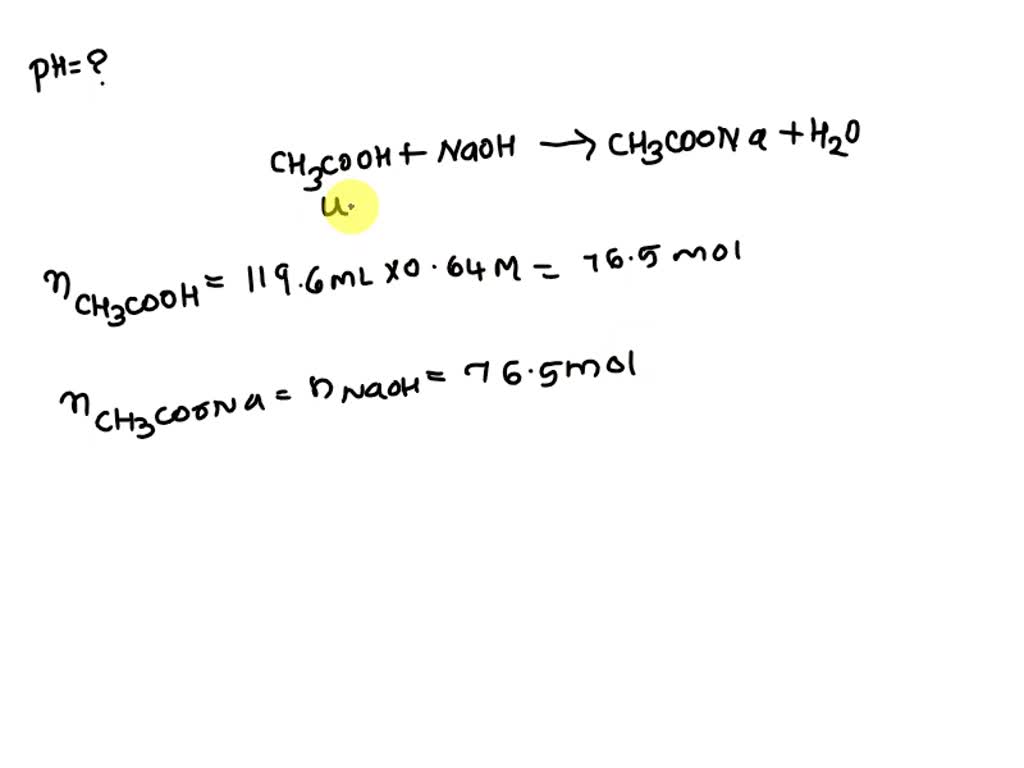 pH=?
CH3COOH + NaOH → CH3COONa + H2O
u.
nCH3COOH = 119.6mL x 0.64M = 76.5 mol
nCH3COONa = nNaOH = 76.5mol